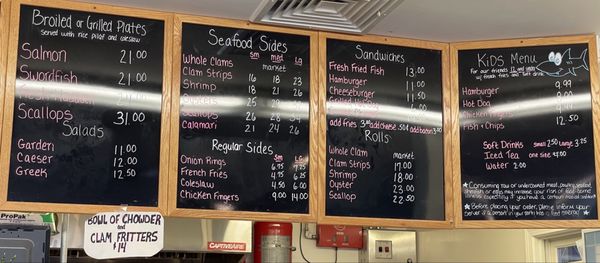 Broiled or Grilled Plates
served with rice pilaf and coleslaw
Salmon 21.00
Swordfish 21.00
Scallops 31.00
Salads
Garden 11.00
Caeser 12.00
Greek 12.50
Seafood Sides
sm med Lg
Whole Clams market
Clam Strips 16 18 23
Shrimp 18 21 26
Calamari 21 24 26
Regular Sides
sm LG
Onion Rings
French Fries 4.75 6.25
Coleslaw 4.50 6.00
Chicken Fingers 9.00 14.00
Sandwiches
Fresh Fried Fish 13.00
Hamburger 11.00
Cheeseburger
add fries add cheese .50¢ add bacon
Rolls
Whole Clam market
Clam Strips 17.00
Shrimp 18.00
Oyster 23.00
Scallop 22.50
Kids Menu
For our friends 12 and under
w/ french fries and soft drink
Hamburger 9.99
Hot Dog
Chicken Fingers
Fish & Chips 12.50
Soft Drinks small 2.50 Large 3.25
Iced Tea one size 4.00
Water 2.00
★ Consuming raw or undercooked meat, poultry, seafood,
shellfish or eggs may increase your risk of food-borne
illness especially if you have a certain medical condition
★ Before placing your order, please inform your
server if a person in your party has a food allergy
ProPak
BOWL OF CHOWDER
AND
CLAM FRITTERS
$14
CAPTIVEAIRE